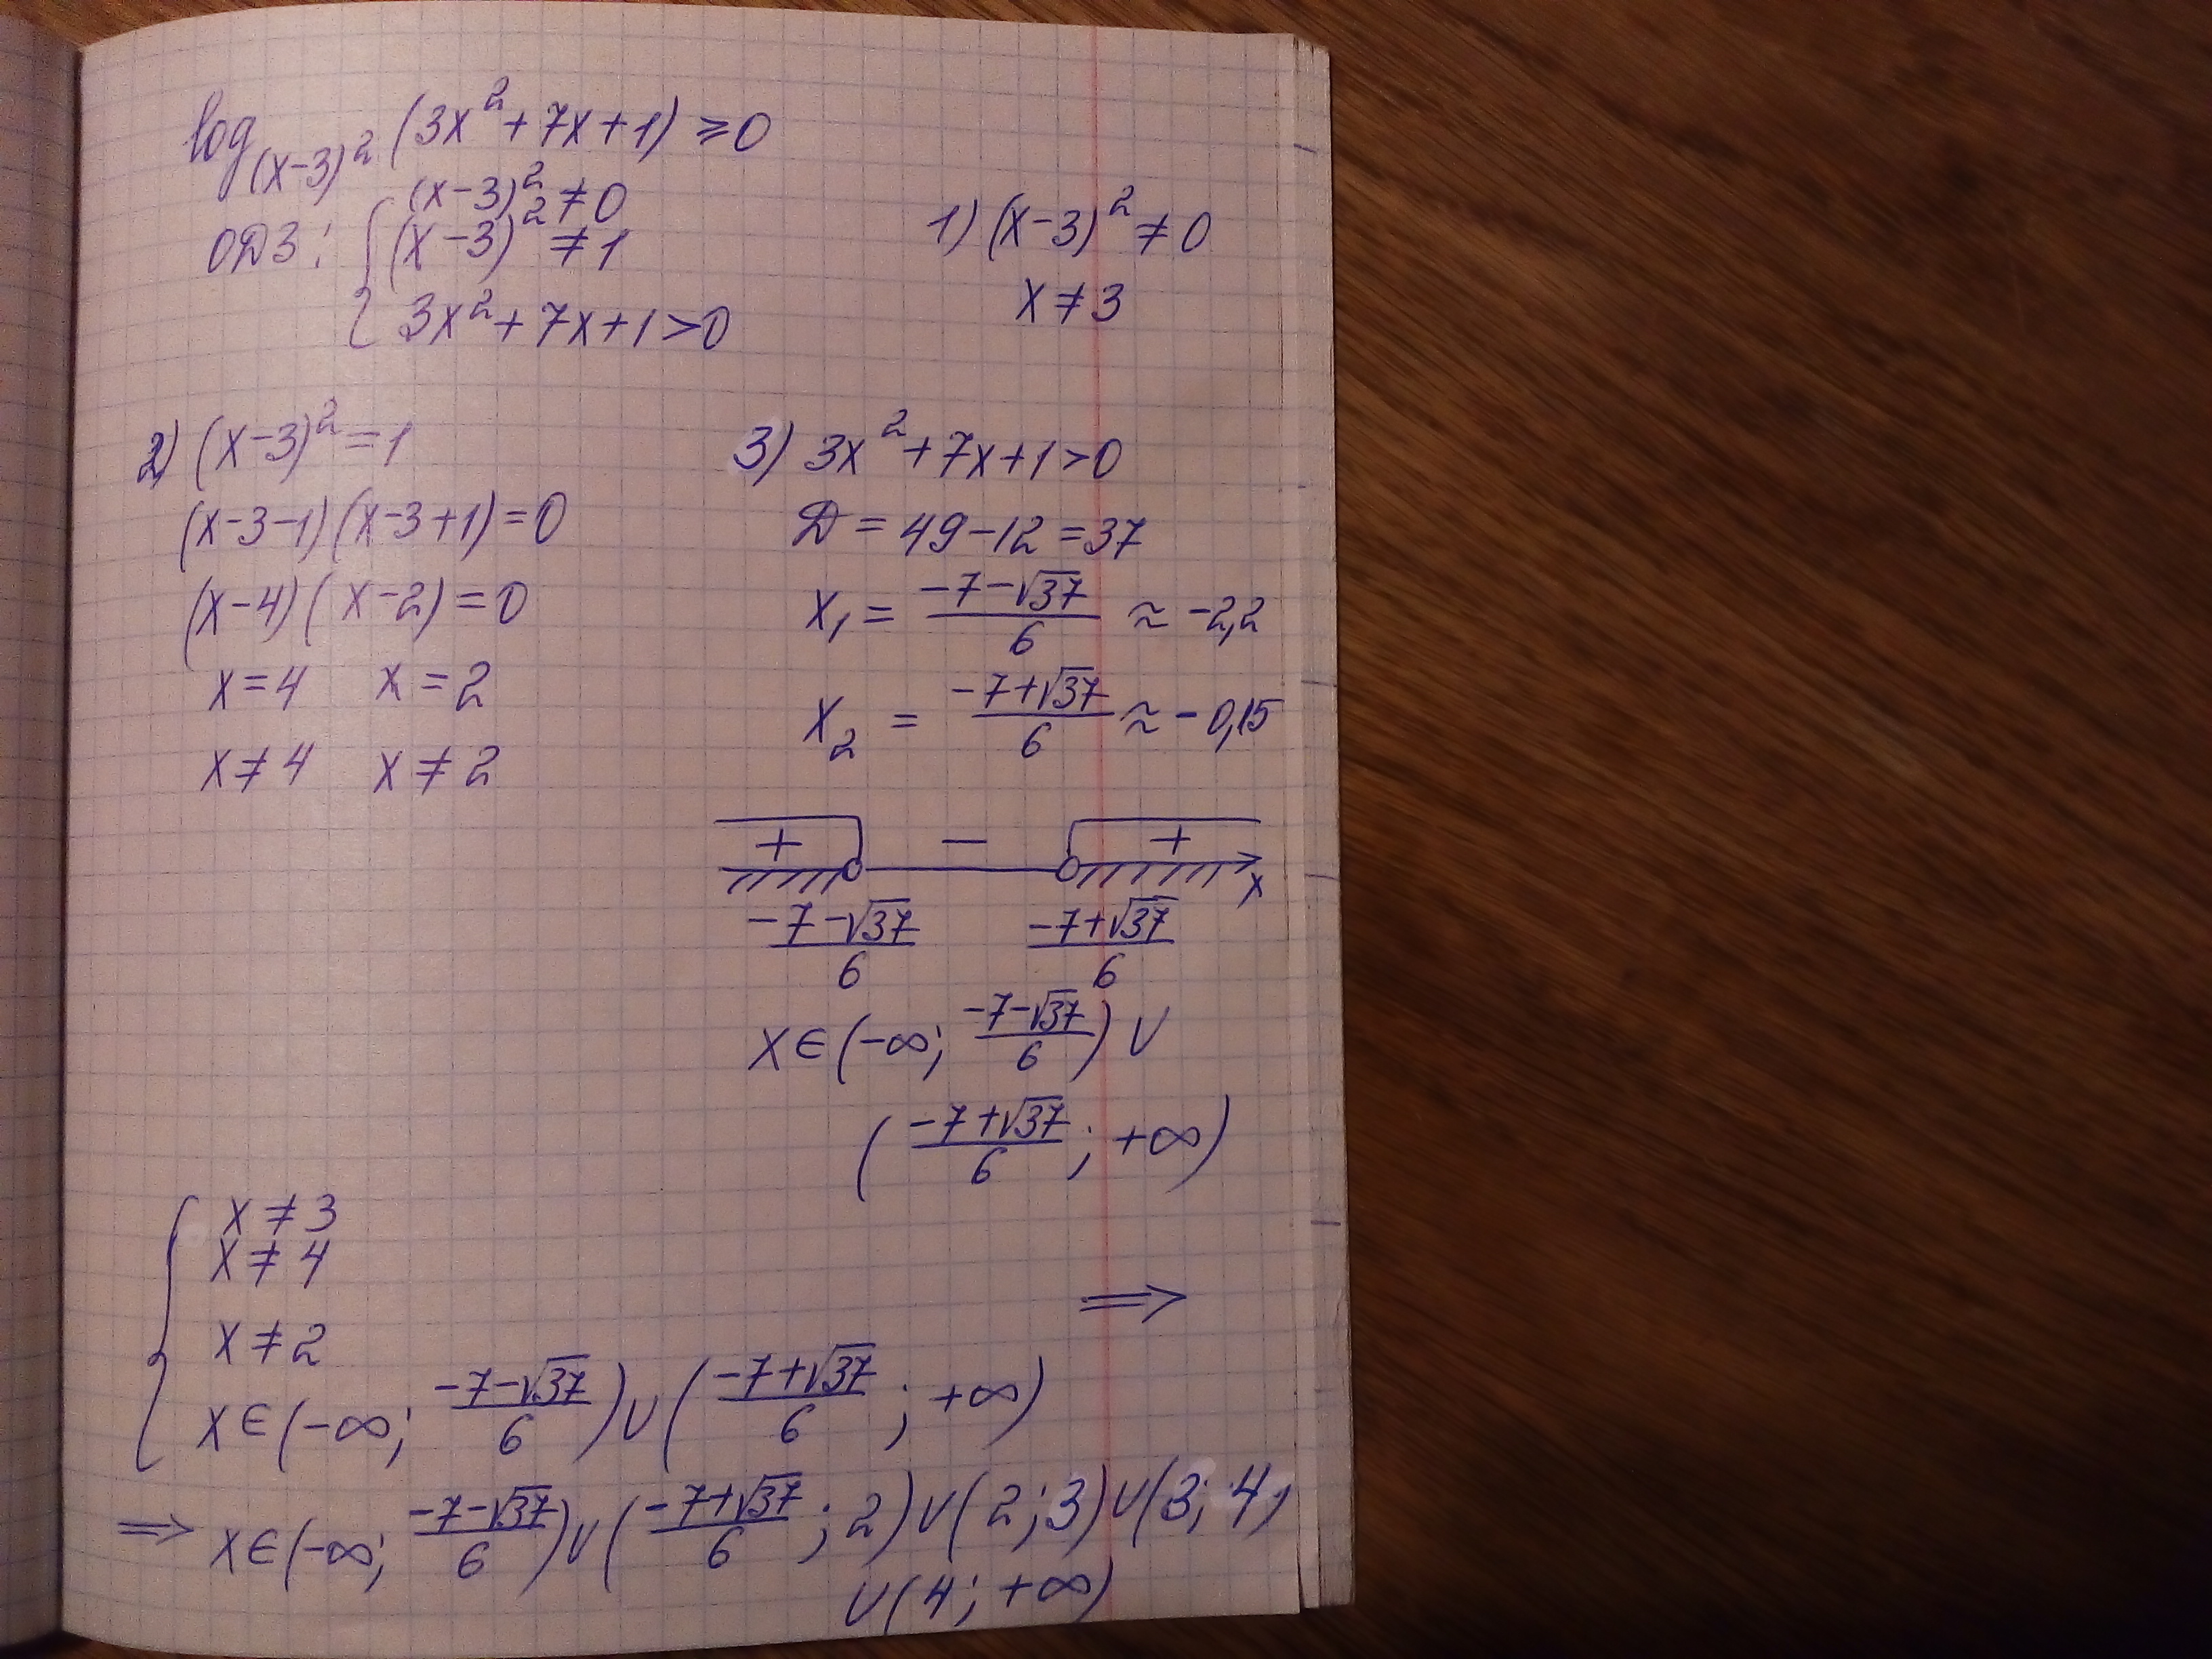 log_{(x-3)^2} (3x^2+7x+1) ⩾ 0
ОДЗ: { (x-3)^2 ≠ 0
(x-3)^2 ≠ 1
3x^2+7x+1>0
1) (x-3)^2 ≠ 0
x ≠ 3
2) (x-3)^2 = 1
(x-3-1)(x-3+1)=0
(x-4)(x-2)=0
x=4 x=2
x≠4 x≠2
3) 3x^2+7x+1>0
Д = 49-12=37
x_1 = \frac{-7-√37}{6} ≈ -2,2
x_2 = \frac{-7+√37}{6} ≈ -0,15
+ − +
x
\frac{-7-√37}{6} \frac{-7+√37}{6}
x∈(-∞; \frac{-7-√37}{6}) ∪
(\frac{-7+√37}{6}; +∞)
{ x ≠ 3
x ≠ 4
x ≠ 2
x∈(-∞; \frac{-7-√37}{6})∪(\frac{-7+√37}{6}; +∞)
⟹
⟹ x∈(-∞; \frac{-7-√37}{6})∪(\frac{-7+√37}{6}; 2)∪(2;3)∪(3;4)
∪(4; +∞)